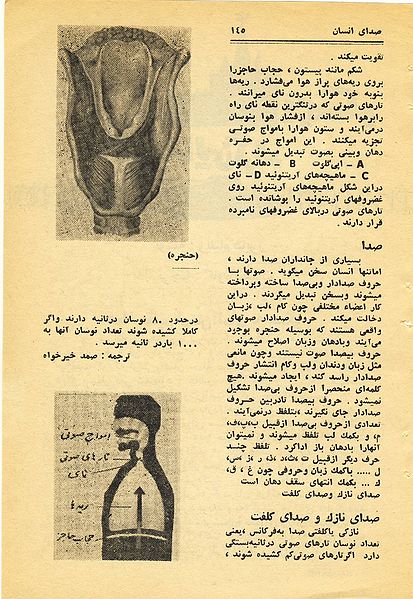 صدای انسان
۱۴۵
تقویت میکند .
شکم مانند پیستون ، حجاب حاجزرا
بروی ریه‌های پراز هوا میفشارد . ریه‌ها
بنوبه خود هوارا بدرون نای میرانند .
تارهای صوتی که درتنگترین نقطه نای راه
رابرهوا بسته‌اند ، ازفشار هوا بنوسان
درمی‌آیند و ستون هوارا بامواج صوتی
تجزیه میکنند . این امواج در حفره
دهان وبینی بصوت تبدیل میشوند .
A - اپی‌گلوت B - دهانه گلوت
C - ماهیچه‌های آریتنوئید D - نای
دراین شکل ماهیچه‌های آریتنوئید روی
غضروفهای آریتنوئید را پوشانده است .
تارهای صوتی دربالای غضروفهای نامبرده
قرار دارند .
صدا
بسیاری از جانداران صدا دارند ،
اماتنها انسان سخن میگوید . صوتها یا
حروف صدادار وبی‌صدا ساخته وپرداخته
میشوند وبسخن تبدیل میگردند . دراین
کار اعضاء مختلفی چون کام ، لب ، زبان
دخالت میکند . حروف صدادار صوتهای
واقعی هستند که بوسیله حنجره بوجود
می‌آیند وبادهان وزبان اصلاح میشوند .
حروف بیصدا صوت نیستند وچون مانعی
مثل زبان ودندان ولب وکام انتشار حروف
صدادار راسد کند ، ایجاد میشوند . هیچ
کلمه‌ای منحصرا ازحروف بی‌صدا تشکیل
نمیشود . حروف بیصدا تادربین حروف
صدادار جای نگیرند ، بتلفظ درنمی‌آیند .
تعدادی ازحروف بی‌صدا ازقبیل ب،پ،ف،
م، و بکمك لب تلفظ میشوند و نمیتوان
آنهارا بادهان باز اداکرد . تلفظ چند
حرف دیگر ازقبیل ت،ث،د،ذ،ر،ز،س،
ل ..... باکمك زبان وحروفی چون غ ، ق،
ك ... بکمك انتهای سقف دهان است
صدای نازك وصدای کلفت
صدای نازك و صدای کلفت
نازکی یاکلفتی صدا به‌فرکانس ،یعنی
تعداد نوسان تارهای صوتی درثانیه‌بستگی
دارد اگرتارهای صوتی‌کم کشیده شوند ،
(حنجره)
درحدود ۸۰ نوسان درثانیه دارند واگر
کاملا کشیده شوند تعداد نوسان آنها به
۱۰۰۰ باردر ثانیه میرسد .
ترجمه : صمد خیرخواه
امواج صوتی
تارهای صوتی
نای
ریه‌ها
حجاب حاجز